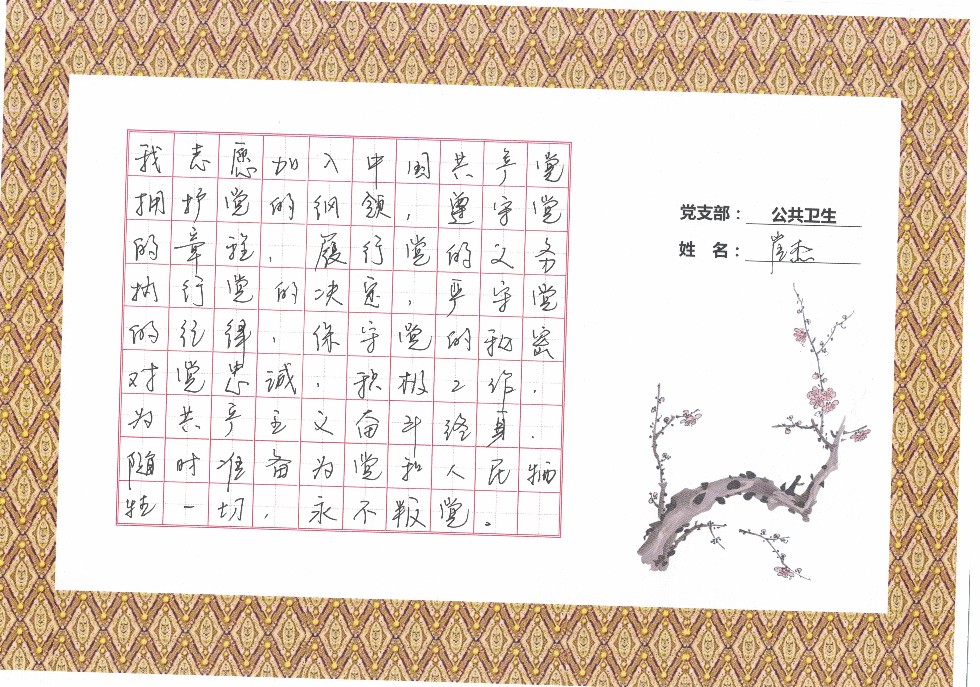 我志愿加入中国共产党
拥护党的纲领，遵守党
的章程，履行党的义务
执行党的决定，严守党
的纪律，保守党的秘密
对党忠诚，积极工作，
为共产主义奋斗终身，
随时准备为党和人民牺
牲一切，永不叛党。
党支部：公共卫生
姓 名：崔杰